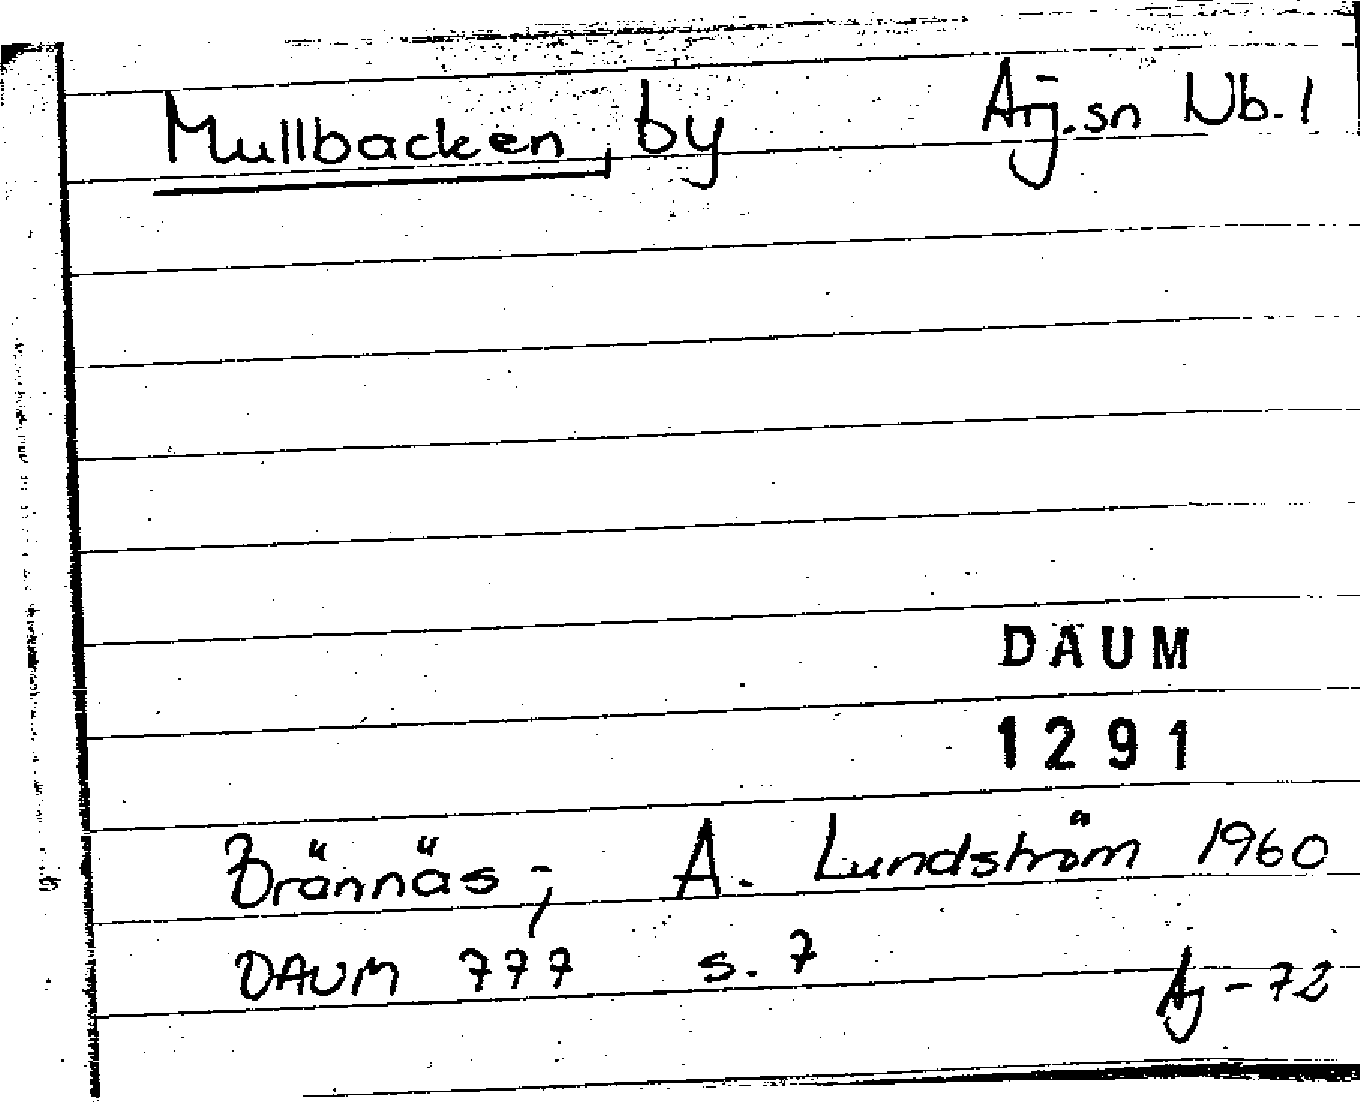 Mullbacken, by Arj.sn Nb.1
DAUM
1291
Brännäs; A. Lundström 1960
DAUM 777 s. 7
Aj-72